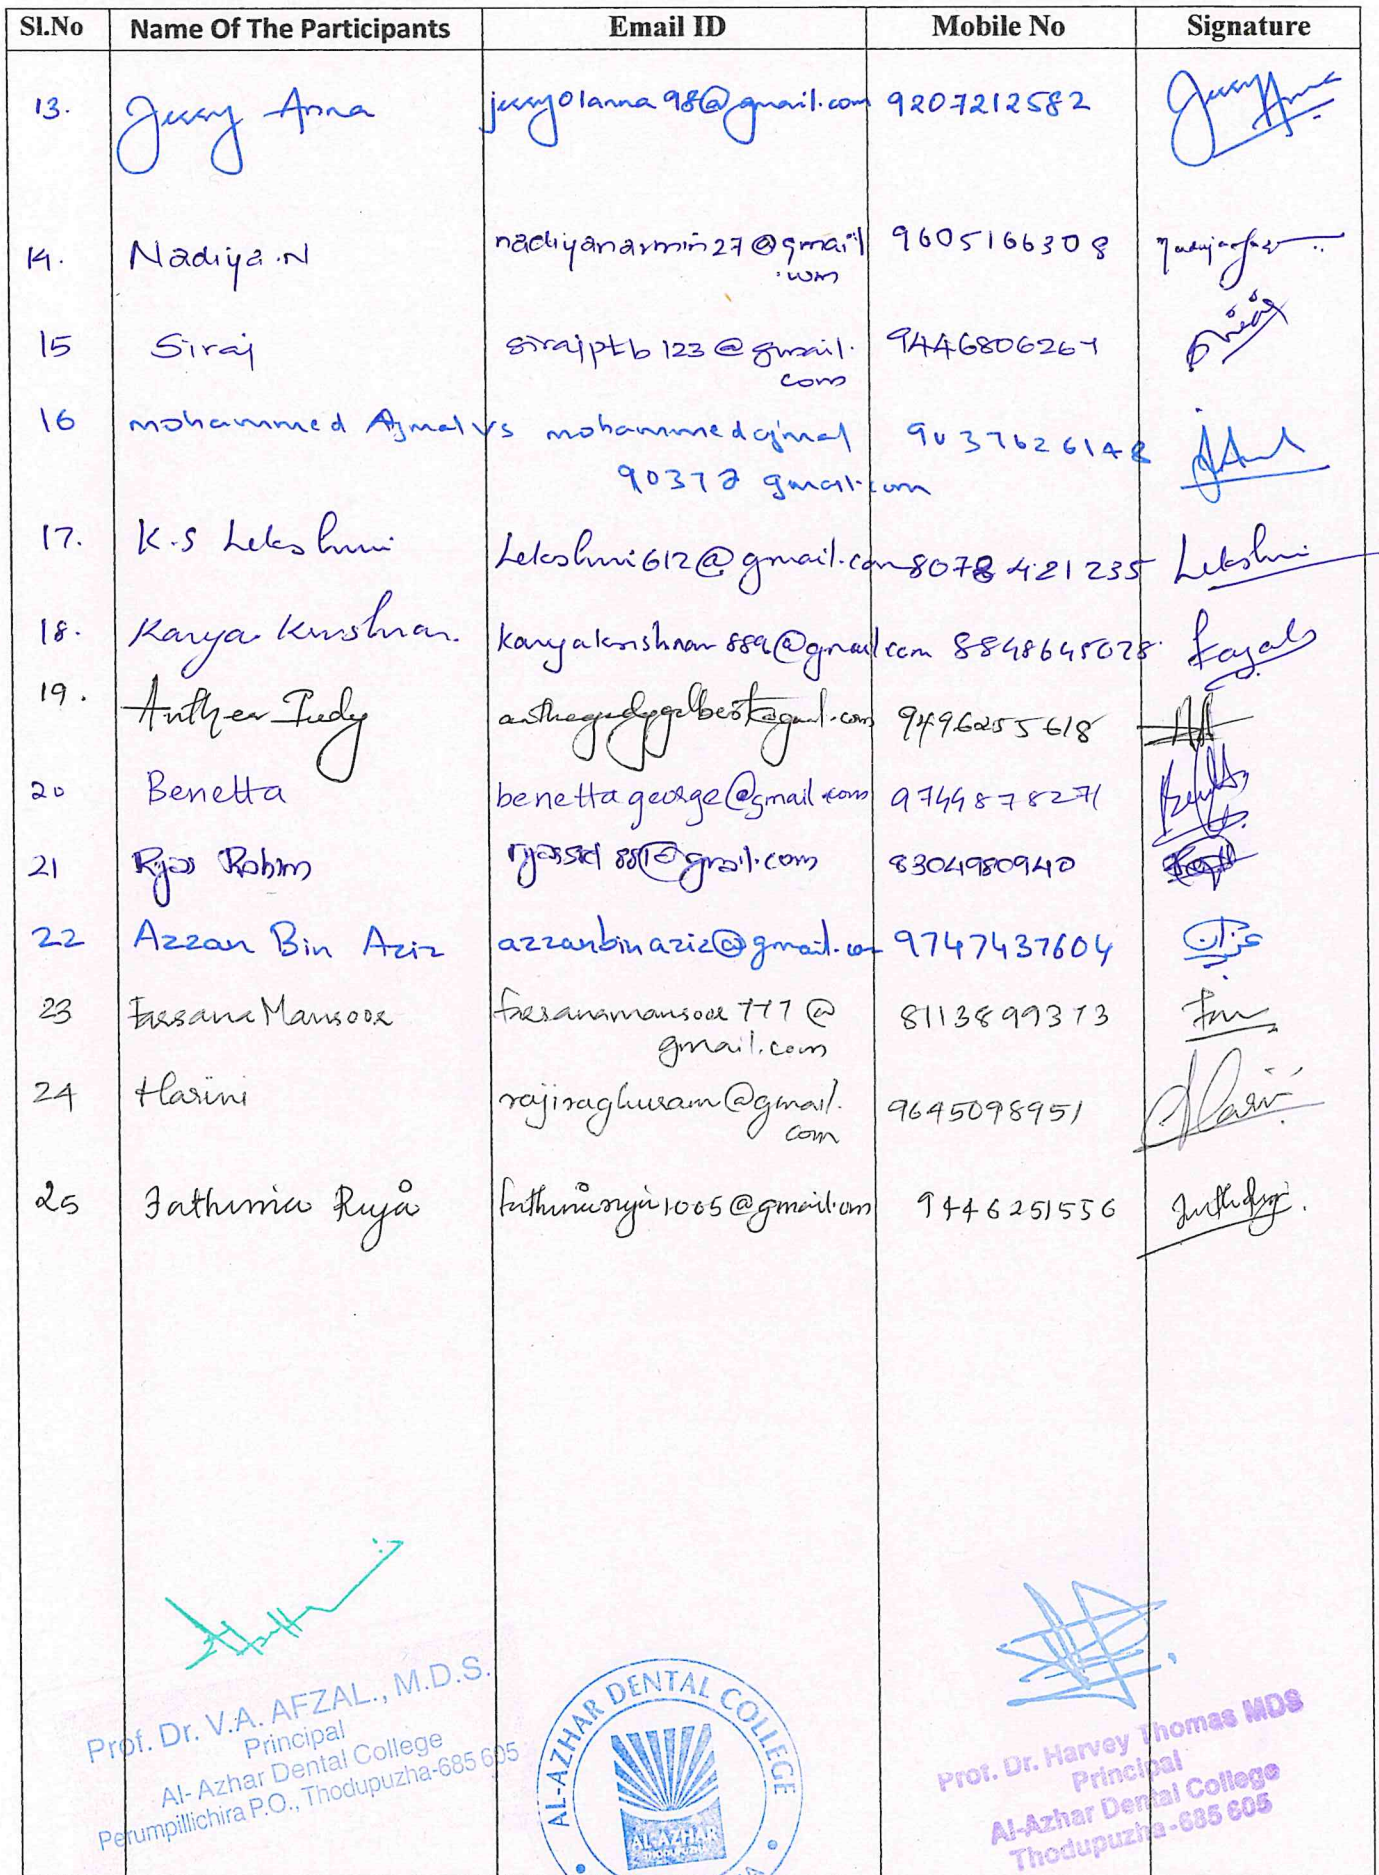 Sl.No Name Of The Participants Email ID Mobile No Signature
13. Jessy Anna jessy01anna98@gmail.com 9207212582
14. Nadiya.N nadiyanarmin27@gmail 9605166308
.com
15 Siraj sirajptb123@gmail. 9446806267
com
16 mohammed Ajmal vs mohammedajmal 9037626148
90372 gmail.com
17. K.S Lekshmi Lekshmi612@gmail.com 8078421235 Lekshmi
18. Kavya Krishnan. 8848645028
19. Anthea Judy 9496255618
20 Benetta benettageorge@gmail.com 9744878271
21 Robim 8304980940
22 Azzan Bin Aziz azzanbinaziz@gmail.com 9747437604 عزان
23 Farsana Mansoor farsanamansoor777@ 8113899373
gmail.com
24 Harini rajiraghuram@gmail. 9645098951 Harini
com
25 Fathima Ruya 9446251556
Prof. Dr. V.A. AFZAL., M.D.S.
Principal
Al- Azhar Dental College
Perumpillichira P.O., Thodupuzha-685 605
AL-AZHAR DENTAL COLLEGE
AL-AZHAR
THODUPUZHA
Prof. Dr. Harvey Thomas MDS
Principal
Al-Azhar Dental College
Thodupuzha-685 605